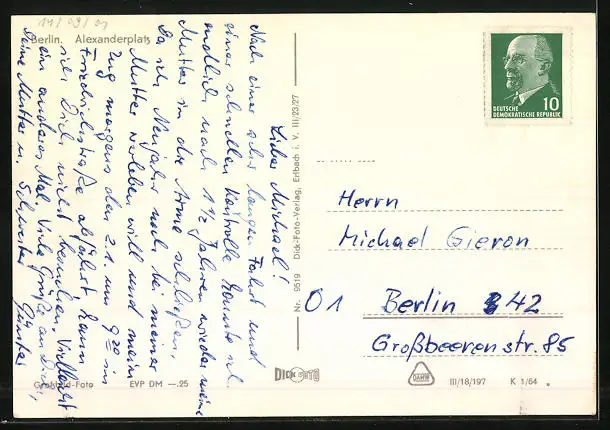 11/09/01
Berlin. Alexanderplatz
Lieber Michael!
Nach einer sehr langen Fahrt und
einer schnellen Kontrolle konnte ich
endlich nach 1 1/2 Jahren wieder meine
Mutter in die Arme schließen.
Da ich Neujahr noch bei meiner
Mutter verleben will und mein
Zug morgens den 2.1. um 9 20 in
Friedrichstraße abfährt kann
ich Dich nicht besuchen. Vielleicht
ein anderes Mal. Viele Grüße an Dich,
Deine Mutter u. Schwester
Günter
Großbild-Foto EVP DM —.25
Nr. 9519 Dick-Foto-Verlag, Erlbach i. V. III/23/27
DICK FOTO
DEUTSCHE
DEMOKRATISCHE REPUBLIK
10
Herrn
Michael Gieron
O1 Berlin 42
Großbeerenstr. 85
III/18/197 K 1/64